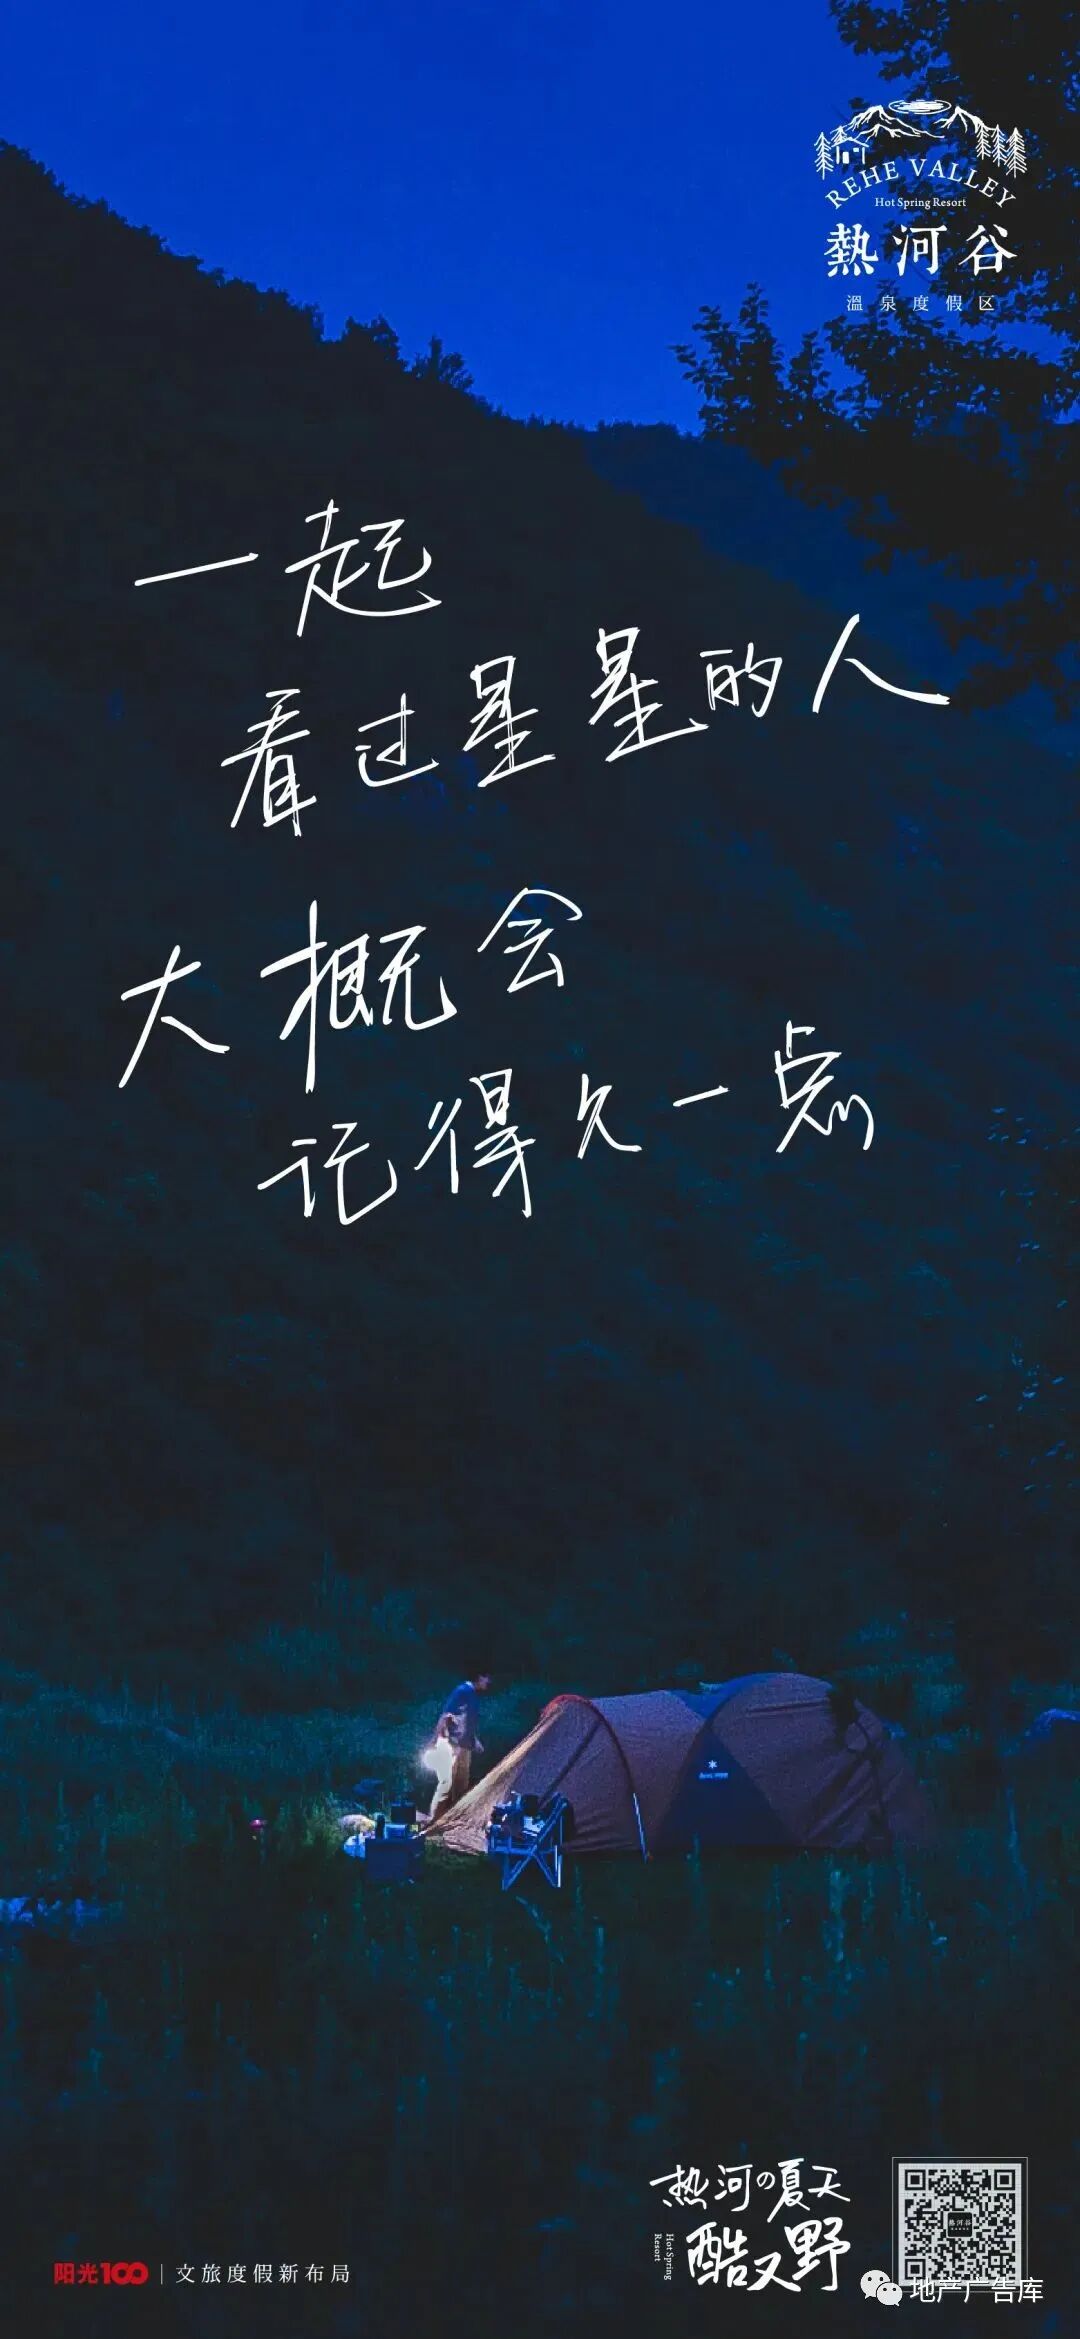 REHE VALLEY
Hot Spring Resort
熱河谷
溫泉度假区
一起
看过星星的人
大概会
记得久一点
热河の夏天
酷又野
Hot Spring
Resort
熱河谷
阳光100 | 文旅度假新布局
地产广告库